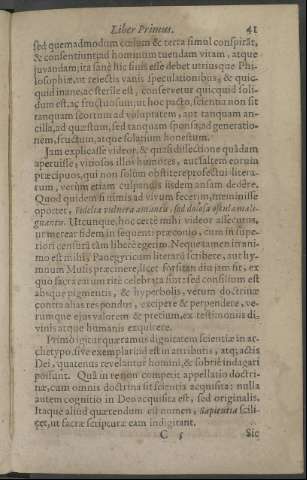 Liber Primus. 41
sed quemadmodum cœlum & terra simul conspirāt,
& consentiunt ad hominum tuendam vitam, atque
juvandam; ita sanè hic finis esse debet utriusque Phi-
losophiæ, ut rejectis vanis speculationibus, & quic-
quid inane, ac sterile est, conservetur quicquid soli-
dum est, ac fructuosum, ut hoc pacto, scientia non sit
tanquam scortum ad voluptatem, aut tanquam an-
cilla, ad quæstum, sed tanquam sponsa, ad generatio-
nem, fructum, atque solatium honestum.
Jam explicasse videor, & quasi dissectione quâdam
aperuisse, vitiosos illos humores, aut saltem eorum
præcipuos, qui non solùm obstitere profectui litera-
rum, verùm etiam culpandis iisdem ansam dedêre.
Quod quidem si nimis ad vivum fecerim, meminisse
oportet, Fidelia vulnera amantis, sed dolosa oscula mali-
gnantis. Utcunque, hoc certè mihi videor assecutus,
ut merear fidem in sequenti præconio, cum in supe-
riori censurâ tàm liberè egerim. Neque tamen in ani-
mo est mihi, Panegyricum literarū scribere, aut hy-
mnum Musis præcinere, licet forsitan diu jam sit, ex
quo sacra earum ritè celebrata sint: sed consilium est
absque pigmentis, & hyperbolis, verum doctrinæ
contra alias res pondus, excipere & perpendere, ve-
rumque ejus valorem & pretium, ex testimoniis di-
vinis atque humanis exquirere.
Primò igitur quæramus dignitatem scientiæ in ar-
chetypo, sive exemplari; id est in attributis, atq; actis
Dei, quatenus revelantur homini, & sobriè indagari
possunt. Quâ in re non competit appellatio doctri-
næ, cum omnis doctrina sit scientia acquisita: nulla
autem cognitio in Deo acquisita est, sed originalis.
Itaque aliud quærendum est nomen, Sapientia scili-
cet, ut sacræ scripturæ eam indigitant.
C 5 Sic